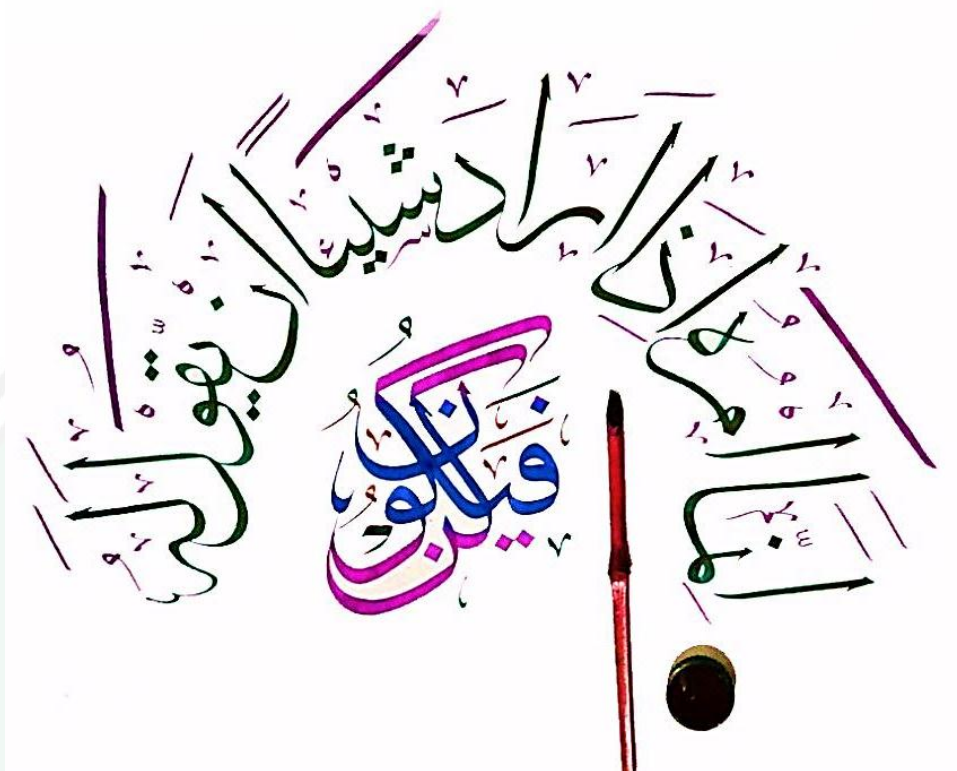 إِنَّمَا أَمْرُهُ إِذَا أَرَادَ شَيْئًا أَنْ يَقُولَ لَهُ
كُنْ فَيَكُونُ